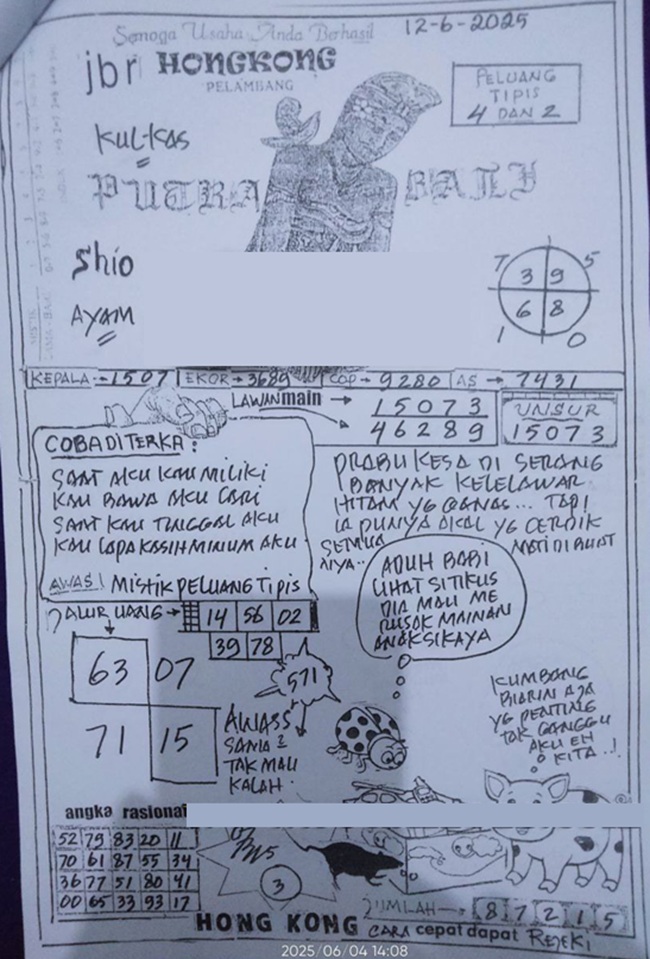 Semoga Usaha Anda Berhasil
12-6-2025
jbr HONGKONG
PELAMBANG
PELUANG
TIPIS
4 DAN 2
KULKAS
PUTRA BALI
Shio
AYAM
7 5
3 9
6 8
1 0
KEPALA → 1507 EKOR → 3689 COP → 9280 AS → 7431
LAWAN main → 15073
46289
UNSUR
15073
COBA DITERKA :
SAAT AKU KAU MILIKI
KAU BAWA AKU LARI
SAAT KAU TINGGAL AKU
KAU LUPA KASIH MINUM AKU
PRABU KESA DI SERANG
BANYAK KELELAWAR
HITAM YG GANAS... TAPI
IA PUNYA AKAL YG CERDIK
SEMUA MATI DI BUAT
NYA..
AWAS! MISTIK PELUANG TIPIS
JALUR UANG → 14 56 02
39 78
ADUH BABI
LIHAT SI TIKUS
DIA MAU ME
RUSAK MAINAN
ANAK SIKAYA
63 07
571
71 15
AWASS
SAMA2
TAK MAU
KALAH
KUMBANG
BIARIN AJA
YG PENTING
TAK GANGGU
AKU EH
KITA..!
angka rasional
52 79 83 20 11
70 61 87 55 34
36 77 51 80 41
00 65 33 93 17
3
JUMLAH → 8 7 2 1 5
HONG KONG CARA cepat dapat REJEKI
2025/06/04 14:08